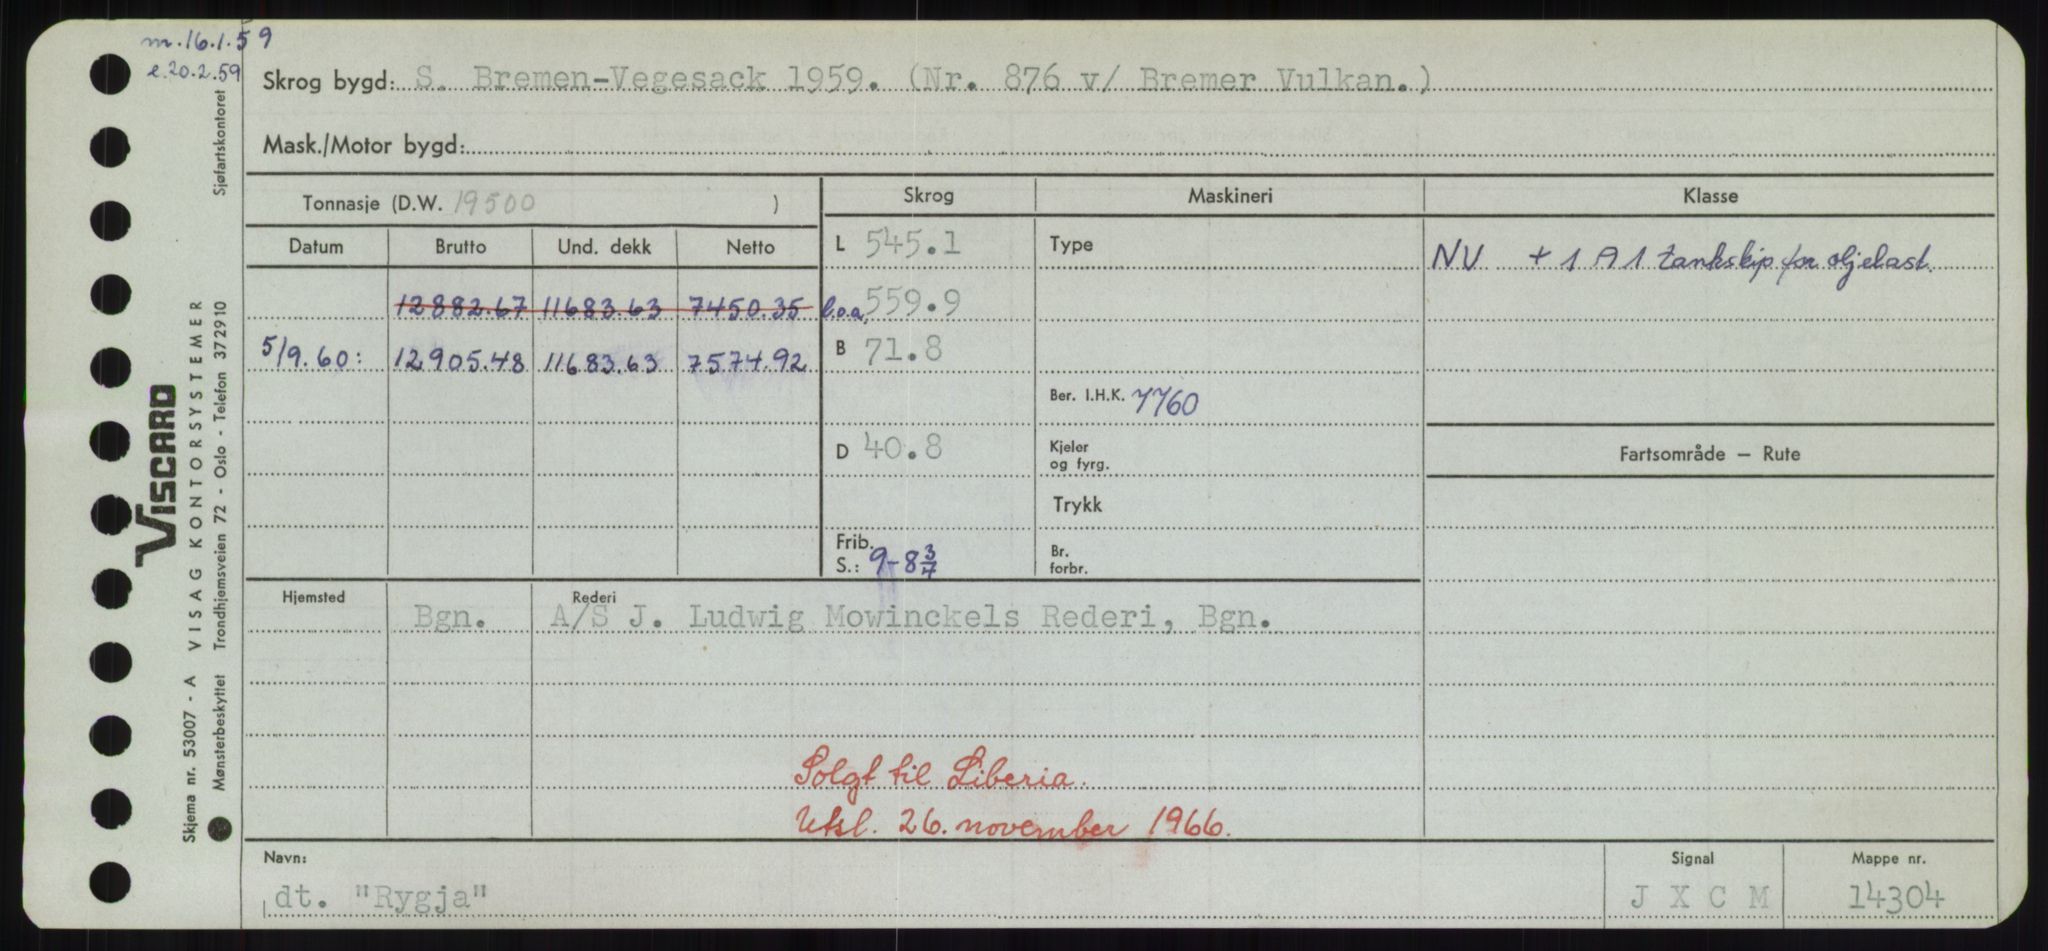 m.16.1.59
e.20.2.59
Skrog bygd: S. Bremen-Vegesack 1959. (Nr. 876 v/ Bremer Vulkan.)
Mask./Motor bygd:
Tonnasje (D.W. 19500 )
Skrog
Maskineri
Klasse
Datum Brutto Und. dekk Netto
L 545.1
Type
NV + 1 A 1 tankskip for oljelast.
12882.67 11683.63 7450.35
l.o.a. 559.9
5/9.60: 12905.48 11683.63 7574.92
B 71.8
Ber. I.H.K. 7760
D 40.8
Kjeler
og fyrg.
Fartsområde — Rute
Trykk
Frib.
S.: 9-8 3/4
Br.
forbr.
Hjemsted
Rederi
Bgn. A/S J. Ludwig Mowinckels Rederi, Bgn.
Solgt til Liberia.
Utsl. 26. november 1966.
Navn:
dt. "Rygja"
Signal
J X C M
Mappe nr.
14304
VISCARD
Skjema nr. 53007 - A VISAG KONTORSYSTEMER
Mønsterbeskyttet Trondhjemsveien 72 - Oslo - Telefon 372910
Sjøfartskontoret